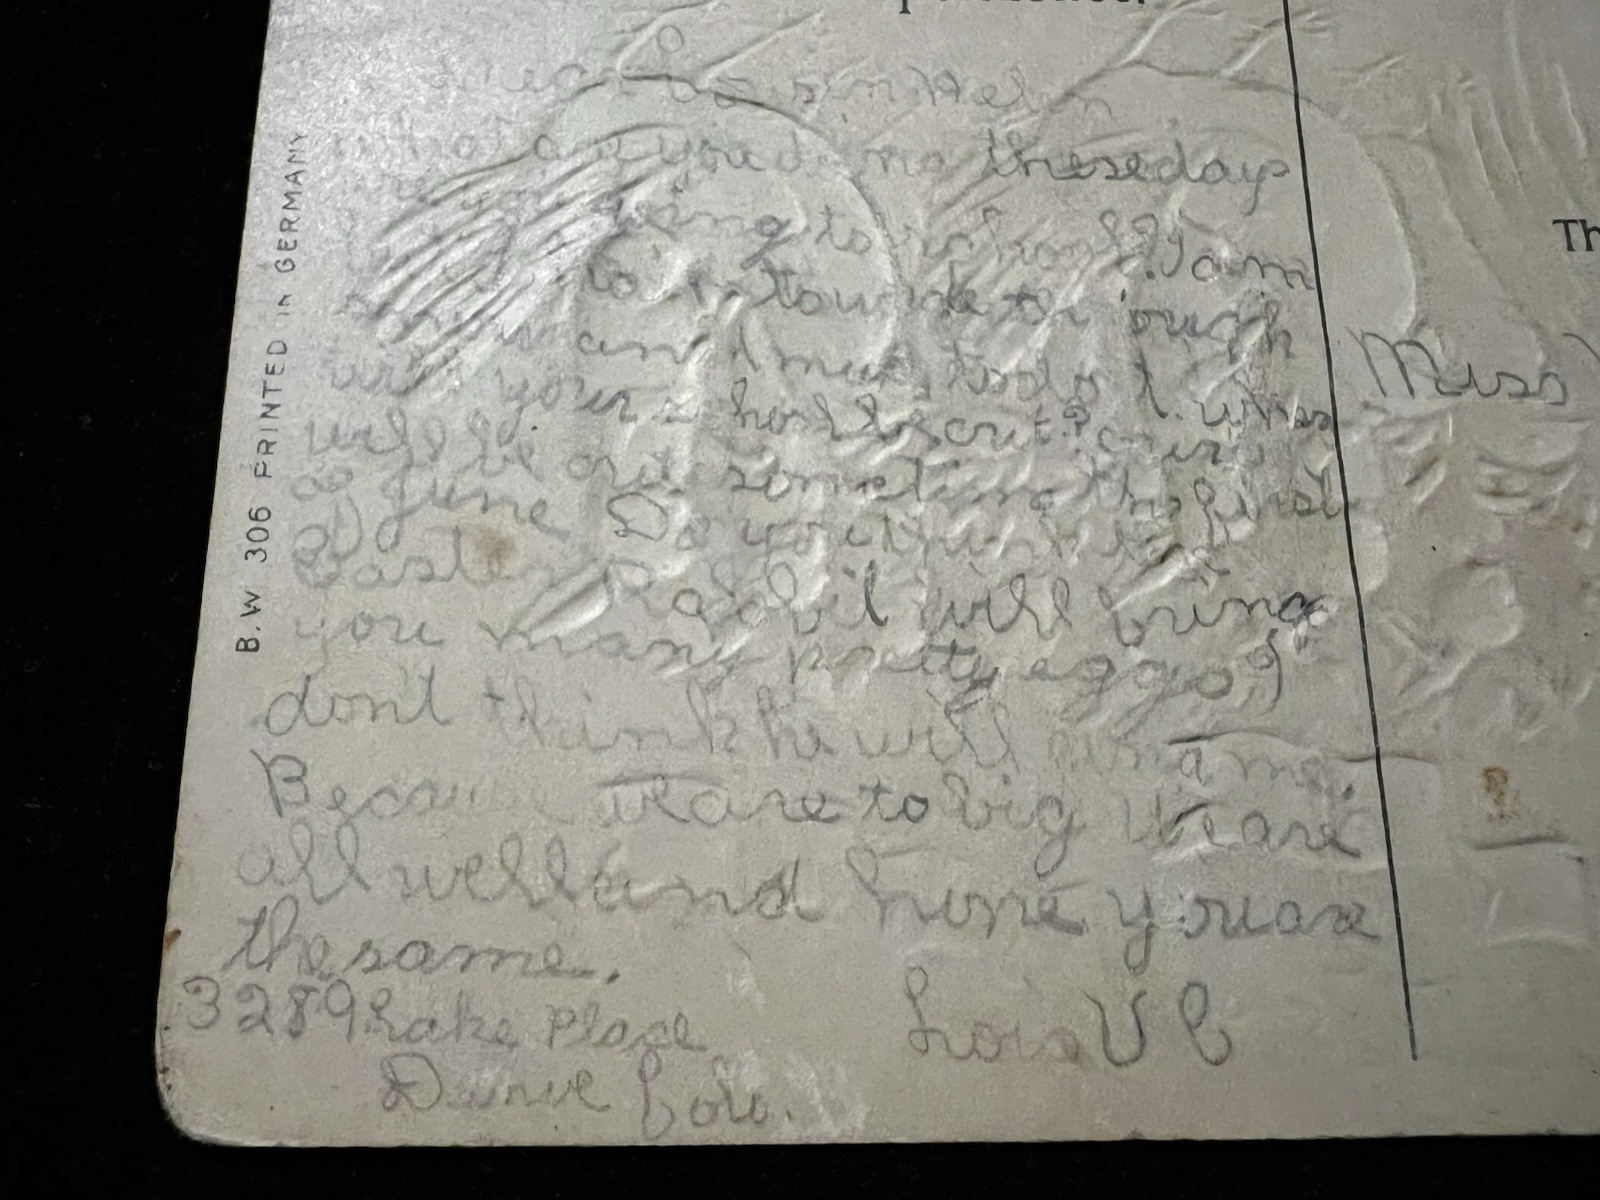 Dear Cousin Helen
what are you doing thesedays
going to school? I am
to
and I must to do it. When
will your school be out? ours
will be out sometime the first
of June Do you think the
Easter Rabbit will bring
you many pretty eggs? I
don't think he will bring me
Because weare to big Weare
all well and hope youare
thesame.
3289 Lake Place
Lois V C
Denve Colo.
B.W. 306 PRINTED IN GERMANY
Miss
Th